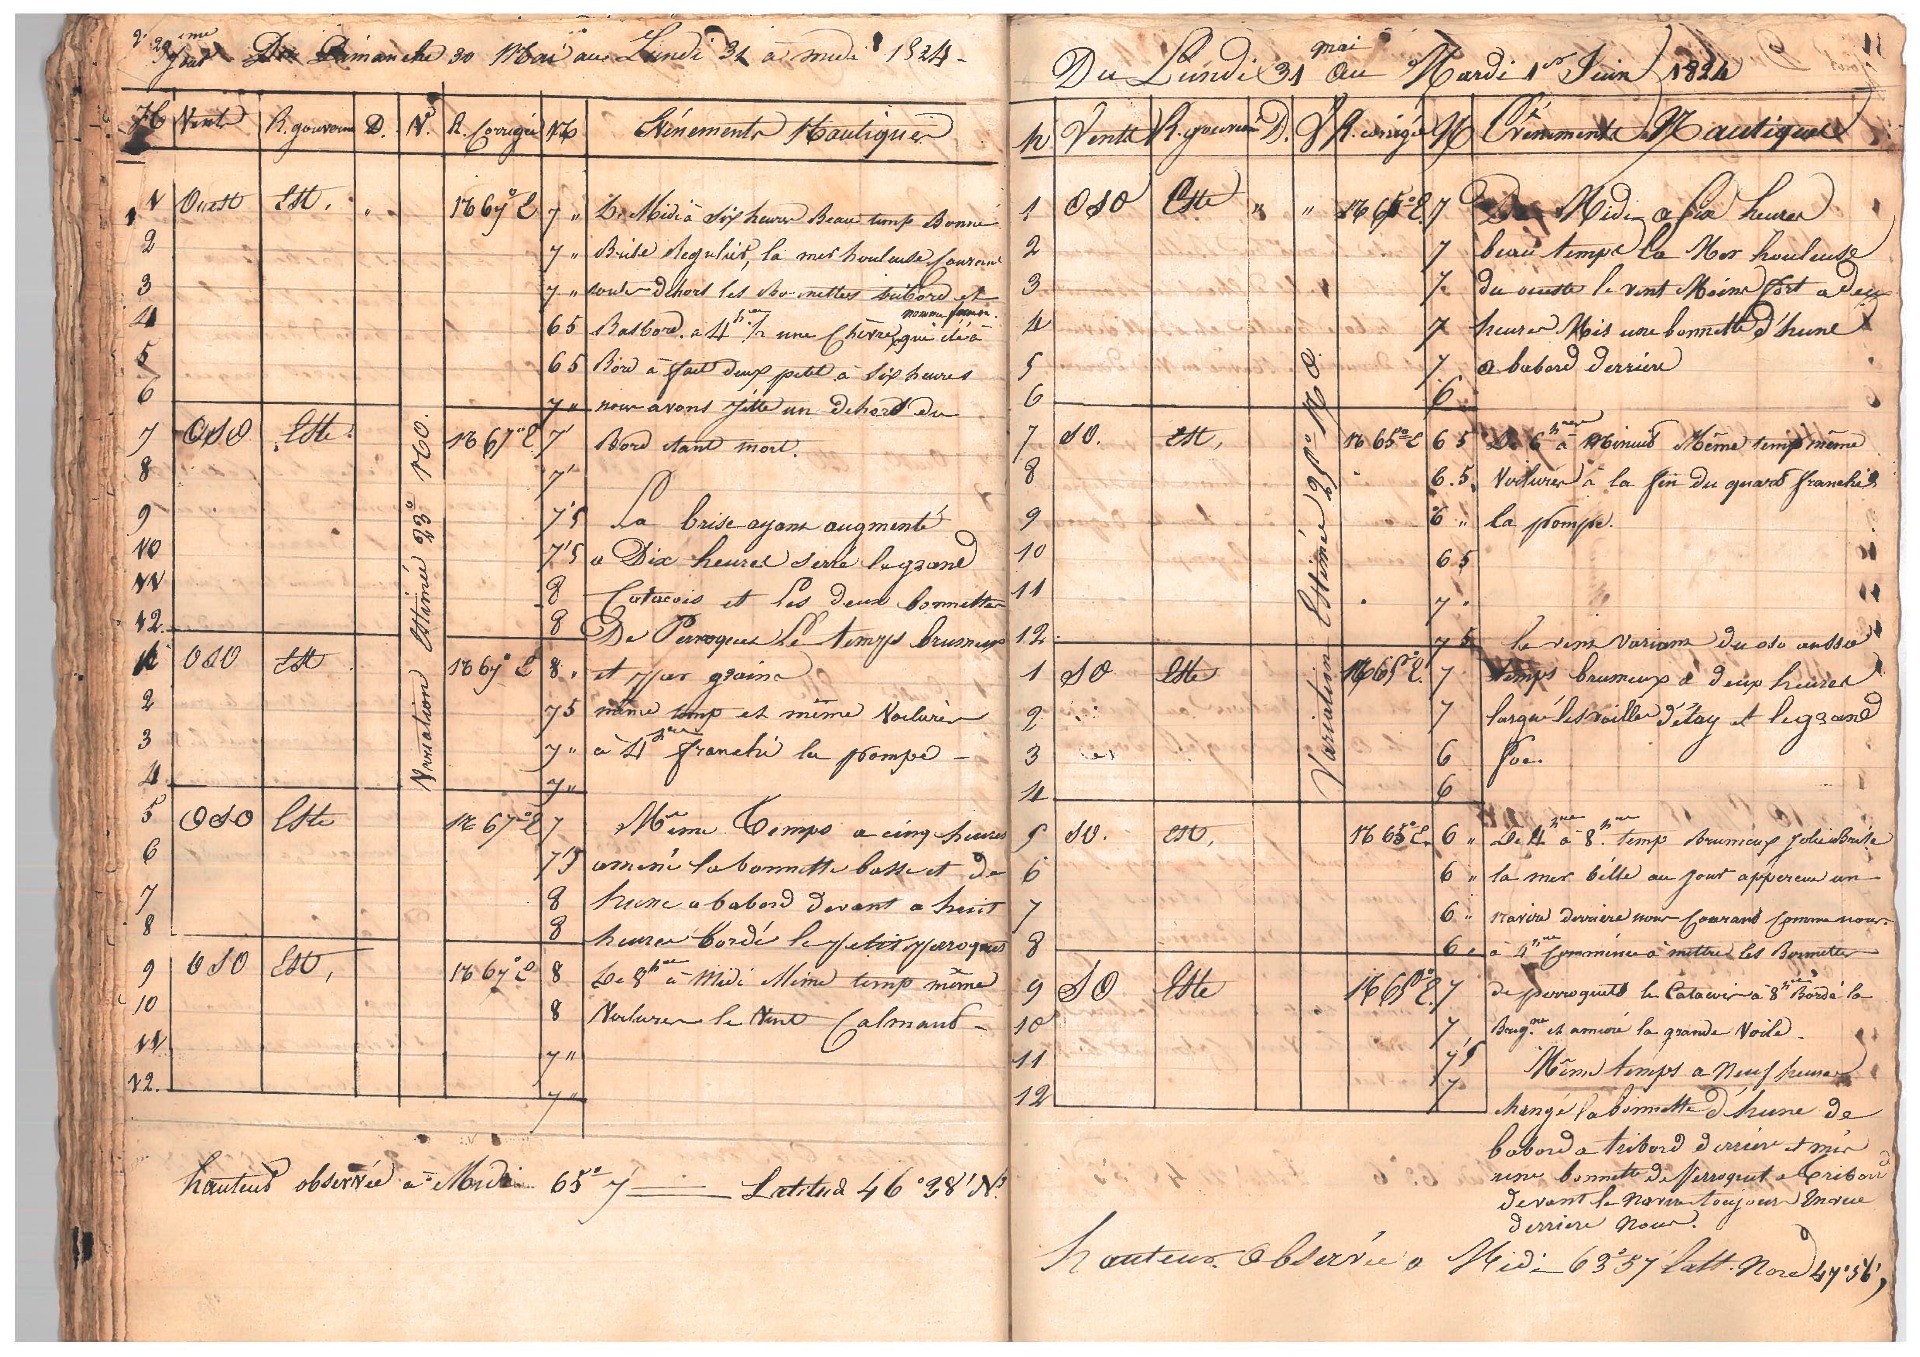 29 ème Jour Du Dimanche 30 Mai au Lundi 31 à midi 1824 -
H Vents R. gouverné D. N. R. Corrigée N Evénements Nautiques
1 Ouest Est. " N 67° E 7 " De Midi à six heures Beau temp Bonne
2 7 " Brise Regulier, la mer houleuse Courant
3 7 " toutes dehors les bonnettes tribord et
4 6 5 Basbord. a 4 hres une Chèvre qui été à
5 6 5 Bord à fait deux petit à six heures
6 7 " nous avons jetté un dehors du
7 OSO Este. N 67° E 7 Bord tant mort.
8 7
9 7 5 La brise ayant augmenté
10 7 5 a Dix heures serré le grand
11 8 Catacois et les deux bonnettes
12. 8 De Perroquet Le temps brumeux
1 OSO Est N 67° E 8 " et par grains
2 7 5 même temp et même Voilures
3 7 " à 4 hres franchi la pompe -
4 7 "
Variation Estimée 23° NO.
5 OSO Este N 67° E 7 Même Temps a cinq heures
6 7 5 amené la bonnette basse et de
7 8 hune a babord devant a huit
8 8 heures bordé le petit perroquet
9 OSO Est, N 67° E 8 De 8 hres à Midi Même temp même
10 8 Voilures le Vent Calmant -
11 7 "
12. 7 "
hauteur observée a Midi 65° 7 Latitude 46° 28' N.
Du Lundi 31 mai Au Mardi 1er Juin 1824
h Vents R. gouverné D. R. corrigé N Evénements Nautiques
1 OSO Este " " N 65° E. 7 De Midi a six heures
2 7 beau temps la Mer houleuse
3 7 du oueste le vent Moins fort a deux
4 7 heures Mis une bonnette d'hune
5 7 a babord derriere
6 6
7 SO. Est, N 65° E 6 5 De 6 hres à Minuit Même temp même
8 6. 5. Voilures à la fin du quart franchie
9 6 " la pompe.
10 6 5
11 7 "
12 7 5 le vent variant du oso au so
1 SO Este N 65° E. 7 temps brumeux a deux heures
2 7 largué les voilles d'étay et le grand
3 6 foc.
4 6
Variation Estimé 25° NO.
5 SO. Est, N 65° E. 6 " De 4 hres à 8 hres temp Brumeux Jolie Brise
6 6 " la mer bélle au jour appercue un
7 6 " navire derriere nous Courant Comme nous.
8 6 " à hres Commencé à mettre les Bonnettes
9 SO Este N 65° E. 7 de perroquets le Catacois à 8 hres Bordé la
10 7 et amuré la grande Voile.
11 7 5 Même temps a Neuf heures
12 7 changé la bonnette d'hune de
babord a tribord derriere et mis
une bonnette de Perroquet a Tribord
devant le Navire toujours En vue
derriere Nous.
hauteur Observée a Midi 63° 57 Latt. Nord 47° 56'